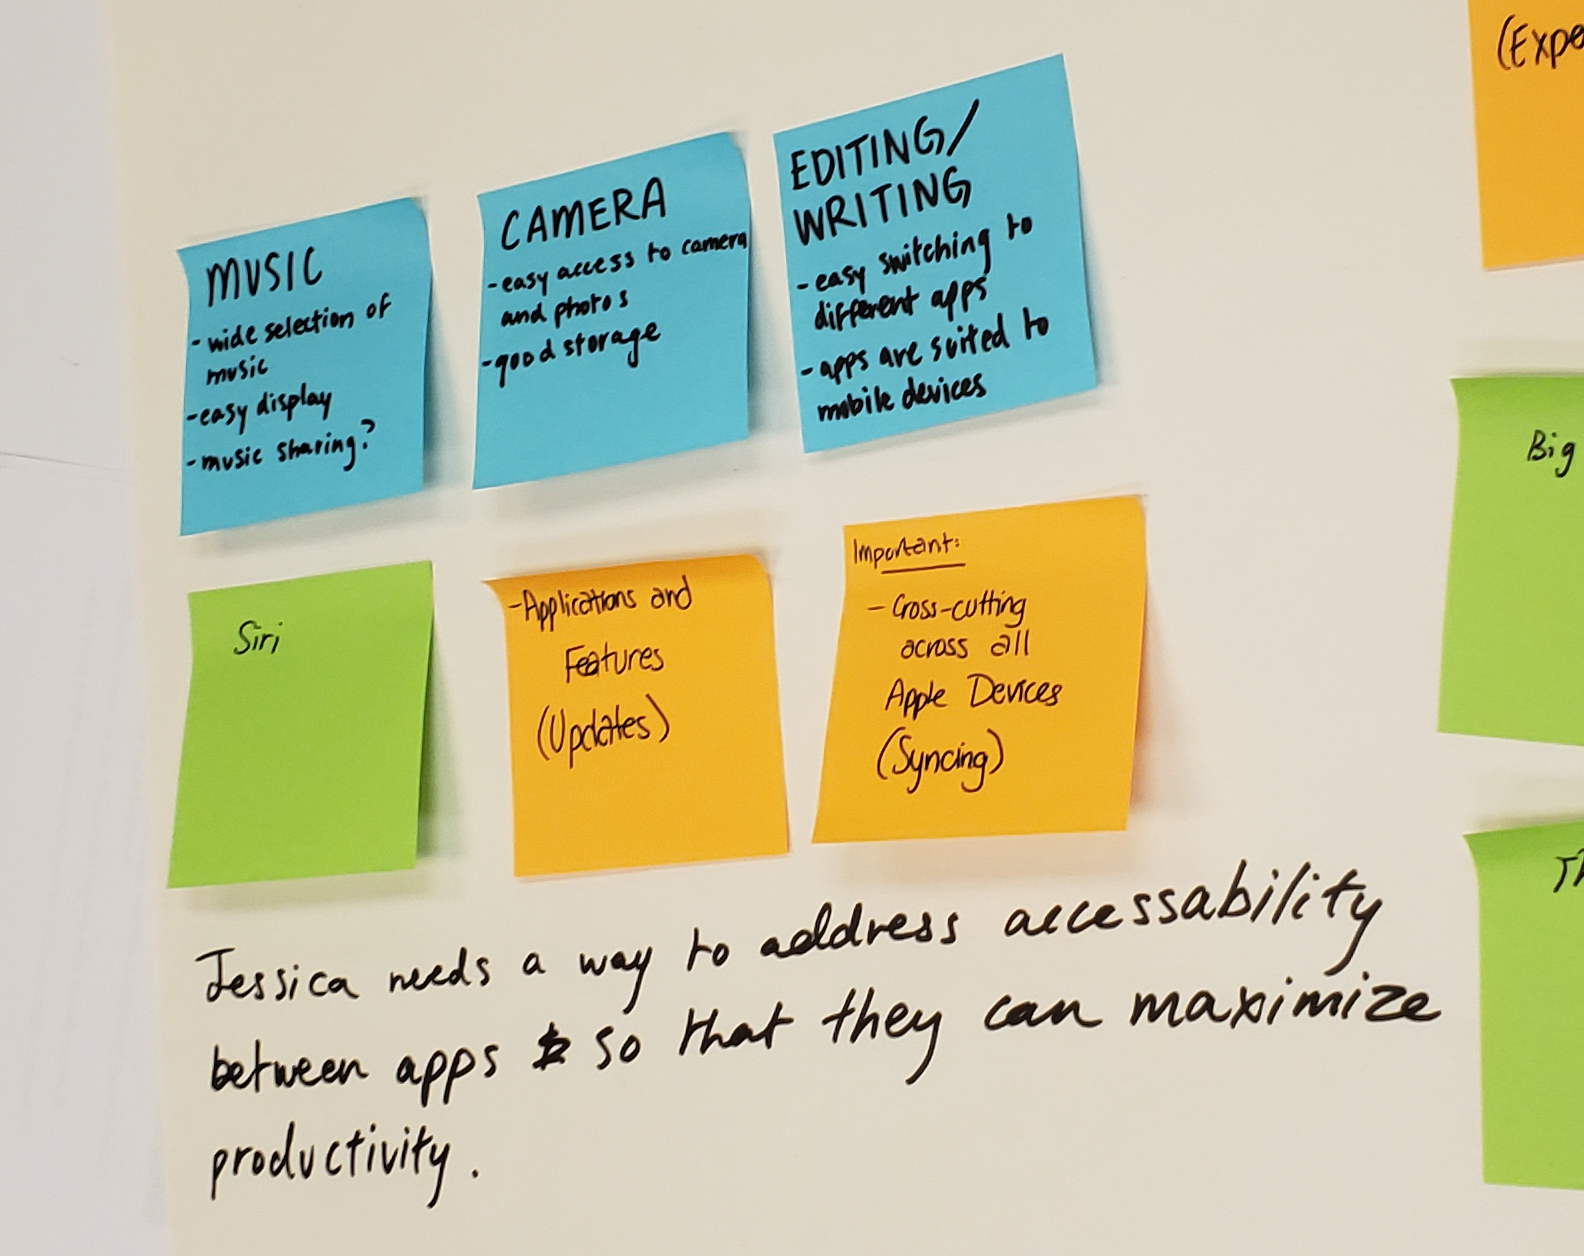 MUSIC
- wide selection of
music
- easy display
- music sharing?
CAMERA
- easy access to camera
and photos
- good storage
EDITING/
WRITING
- easy switching to
different apps
- apps are suited to
mobile devices
Siri
- Applications and
Features
(Updates)
Important:
- Cross-cutting
across all
Apple Devices
(Syncing)
Jessica needs a way to address accessability
between apps so that they can maximize
productivity.
(Expe
Big
Th